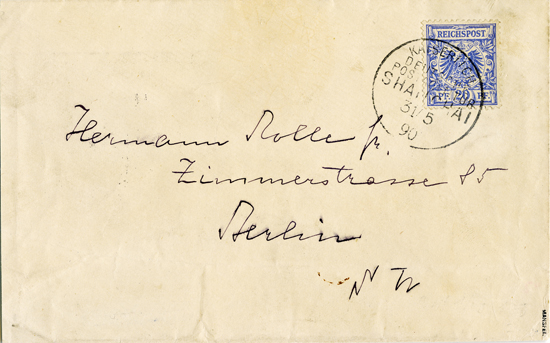 REICHSPOST
KAISERLICH
DEUTSCHE
POSTAGENTUR
SHANGHAI
31/5
90
20
PF
PF
Hermann Rolle jr.
Zimmerstrasse 85
Berlin
N W